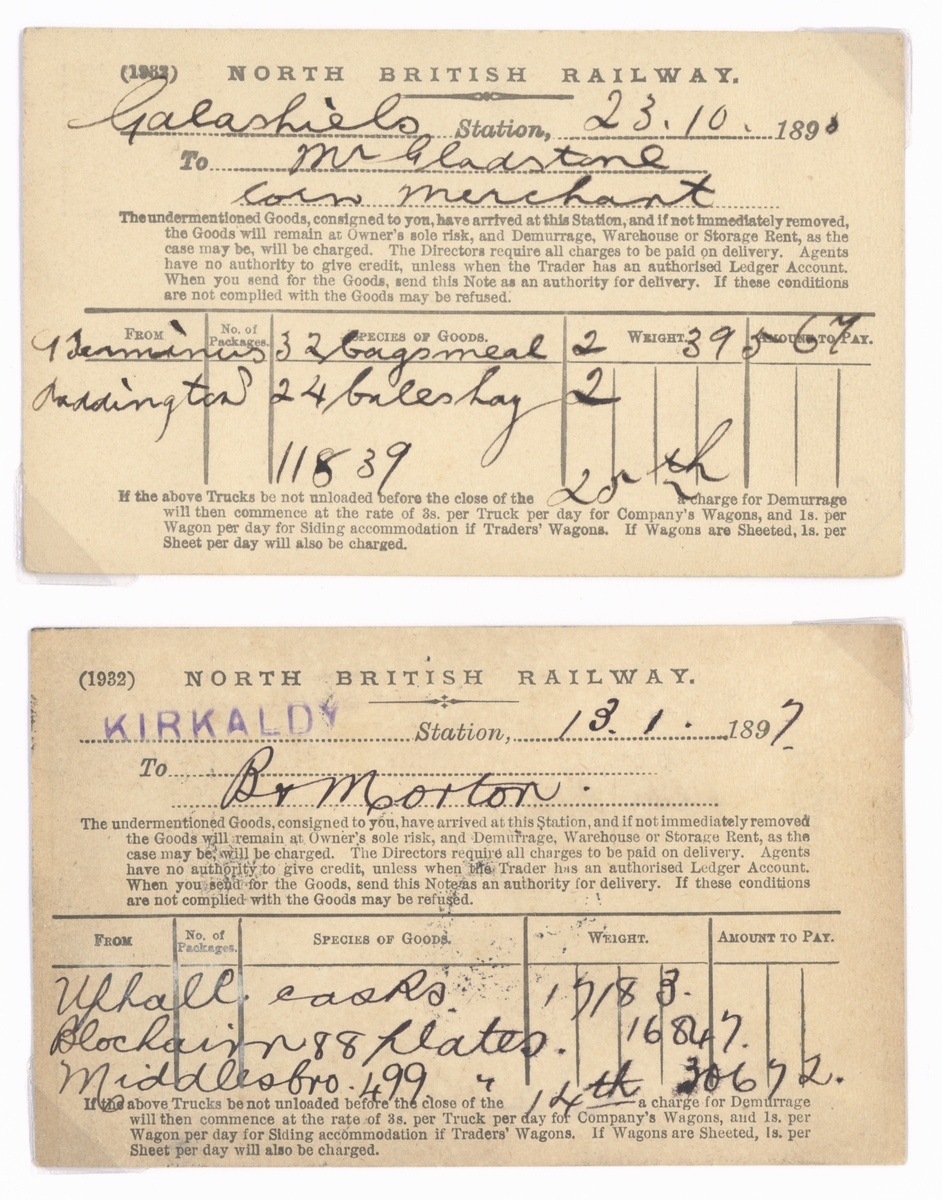 (1932) NORTH BRITISH RAILWAY.
Galashiels Station, 23.10. 189
To Mr Gladstone
Corn Merchant
The undermentioned Goods, consigned to you, have arrived at this Station, and if not immediately removed,
the Goods will remain at Owner's sole risk, and Demurrage, Warehouse or Storage Rent, as the
case may be, will be charged. The Directors require all charges to be paid on delivery. Agents
have no authority to give credit, unless when the Trader has an authorised Ledger Account.
When you send for the Goods, send this Note as an authority for delivery. If these conditions
are not complied with the Goods may be refused.
FROM No. of Packages. SPECIES OF GOODS. WEIGHT. AMOUNT TO PAY.
32 bags meal 2 39 5 67
Haddington 24 bales hay 2
11839
If the above Trucks be not unloaded before the close of the 25th a charge for Demurrage
will then commence at the rate of 3s. per Truck per day for Company's Wagons, and 1s. per
Wagon per day for Siding accommodation if Traders' Wagons. If Wagons are Sheeted, 1s. per
Sheet per day will also be charged.
(1932) NORTH BRITISH RAILWAY.
KIRKALDY Station, 13.1. 1897
To
Br Morton.
The undermentioned Goods, consigned to you, have arrived at this Station, and if not immediately removed
the Goods will remain at Owner's sole risk, and Demurrage, Warehouse or Storage Rent, as the
case may be, will be charged. The Directors require all charges to be paid on delivery. Agents
have no authority to give credit, unless when the Trader has an authorised Ledger Account.
When you send for the Goods, send this Note as an authority for delivery. If these conditions
are not complied with the Goods may be refused.
FROM No. of Packages. SPECIES OF GOODS. WEIGHT. AMOUNT TO PAY.
Uphall. casks 17183.
Blochairn 88 plates. 16847.
Middlesbro. 499 " 30672.
If the above Trucks be not unloaded before the close of the 14th a charge for Demurrage
will then commence at the rate of 3s. per Truck per day for Company's Wagons, and 1s. per
Wagon per day for Siding accommodation if Traders' Wagons. If Wagons are Sheeted, 1s. per
Sheet per day will also be charged.